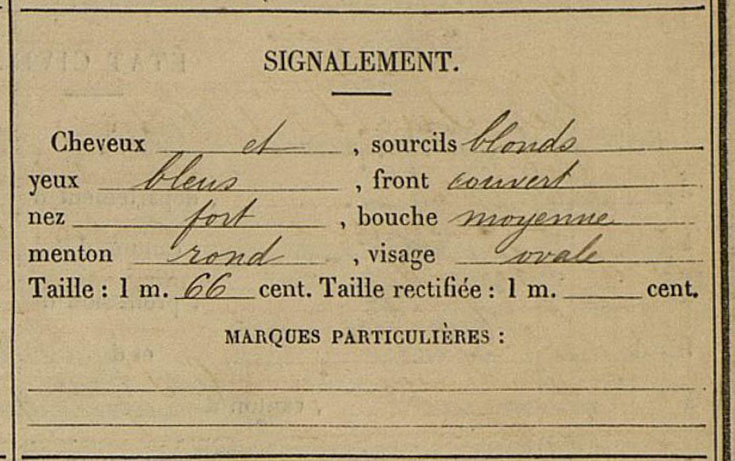 SIGNALEMENT.
Cheveux et , sourcils blonds
yeux bleus , front couvert
nez fort , bouche moyenne
menton rond , visage ovale
Taille : 1 m. 66 cent. Taille rectifiée : 1 m. cent.
MARQUES PARTICULIÈRES :